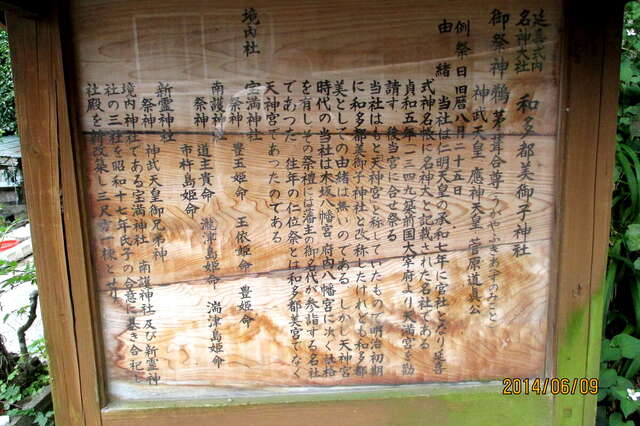 延喜式内
名神大社 和多都美御子神社
御祭神 鵜茅葺合尊（うがやふきあわすのみこと）
神武天皇 應神天皇 菅原道真公
例祭日 旧暦八月二十五日
由緒 当社は仁明天皇の承和七年に官社となり延喜
式神名帳に名神大と記載された名社である
貞和五年（一三四九）筑前国大宰府より天満宮を勧
請す 後当宮に合せ祭る
当社はもと天神宮と称していたもので明治初期
に和多都美御子神社と改称したけれども和多都
美としての由緒は無いのである しかし天神宮
時代の当社は木坂八幡宮 府内八幡宮に次ぐ社格
を有しその祭禮には藩主の御名代が参詣する名社
であつた 往年の仁位祭とは和多都美宮でなく
天神宮であつたのである
境内社
宝満神社
祭神 豊玉姫命 玉依姫命 豊姫命
南護神社
祭神 道主貴命 瀧津島姫命 湍津島姫命
市杵島姫命
新霊神社
祭神 神武天皇御兄弟神
境内神社である宝満神社 南護神社及び新霊神
社の三社を昭和十七年氏子の合意に基き合祀し
社殿を新改築し三尺方一棟とせり
2014/06/09